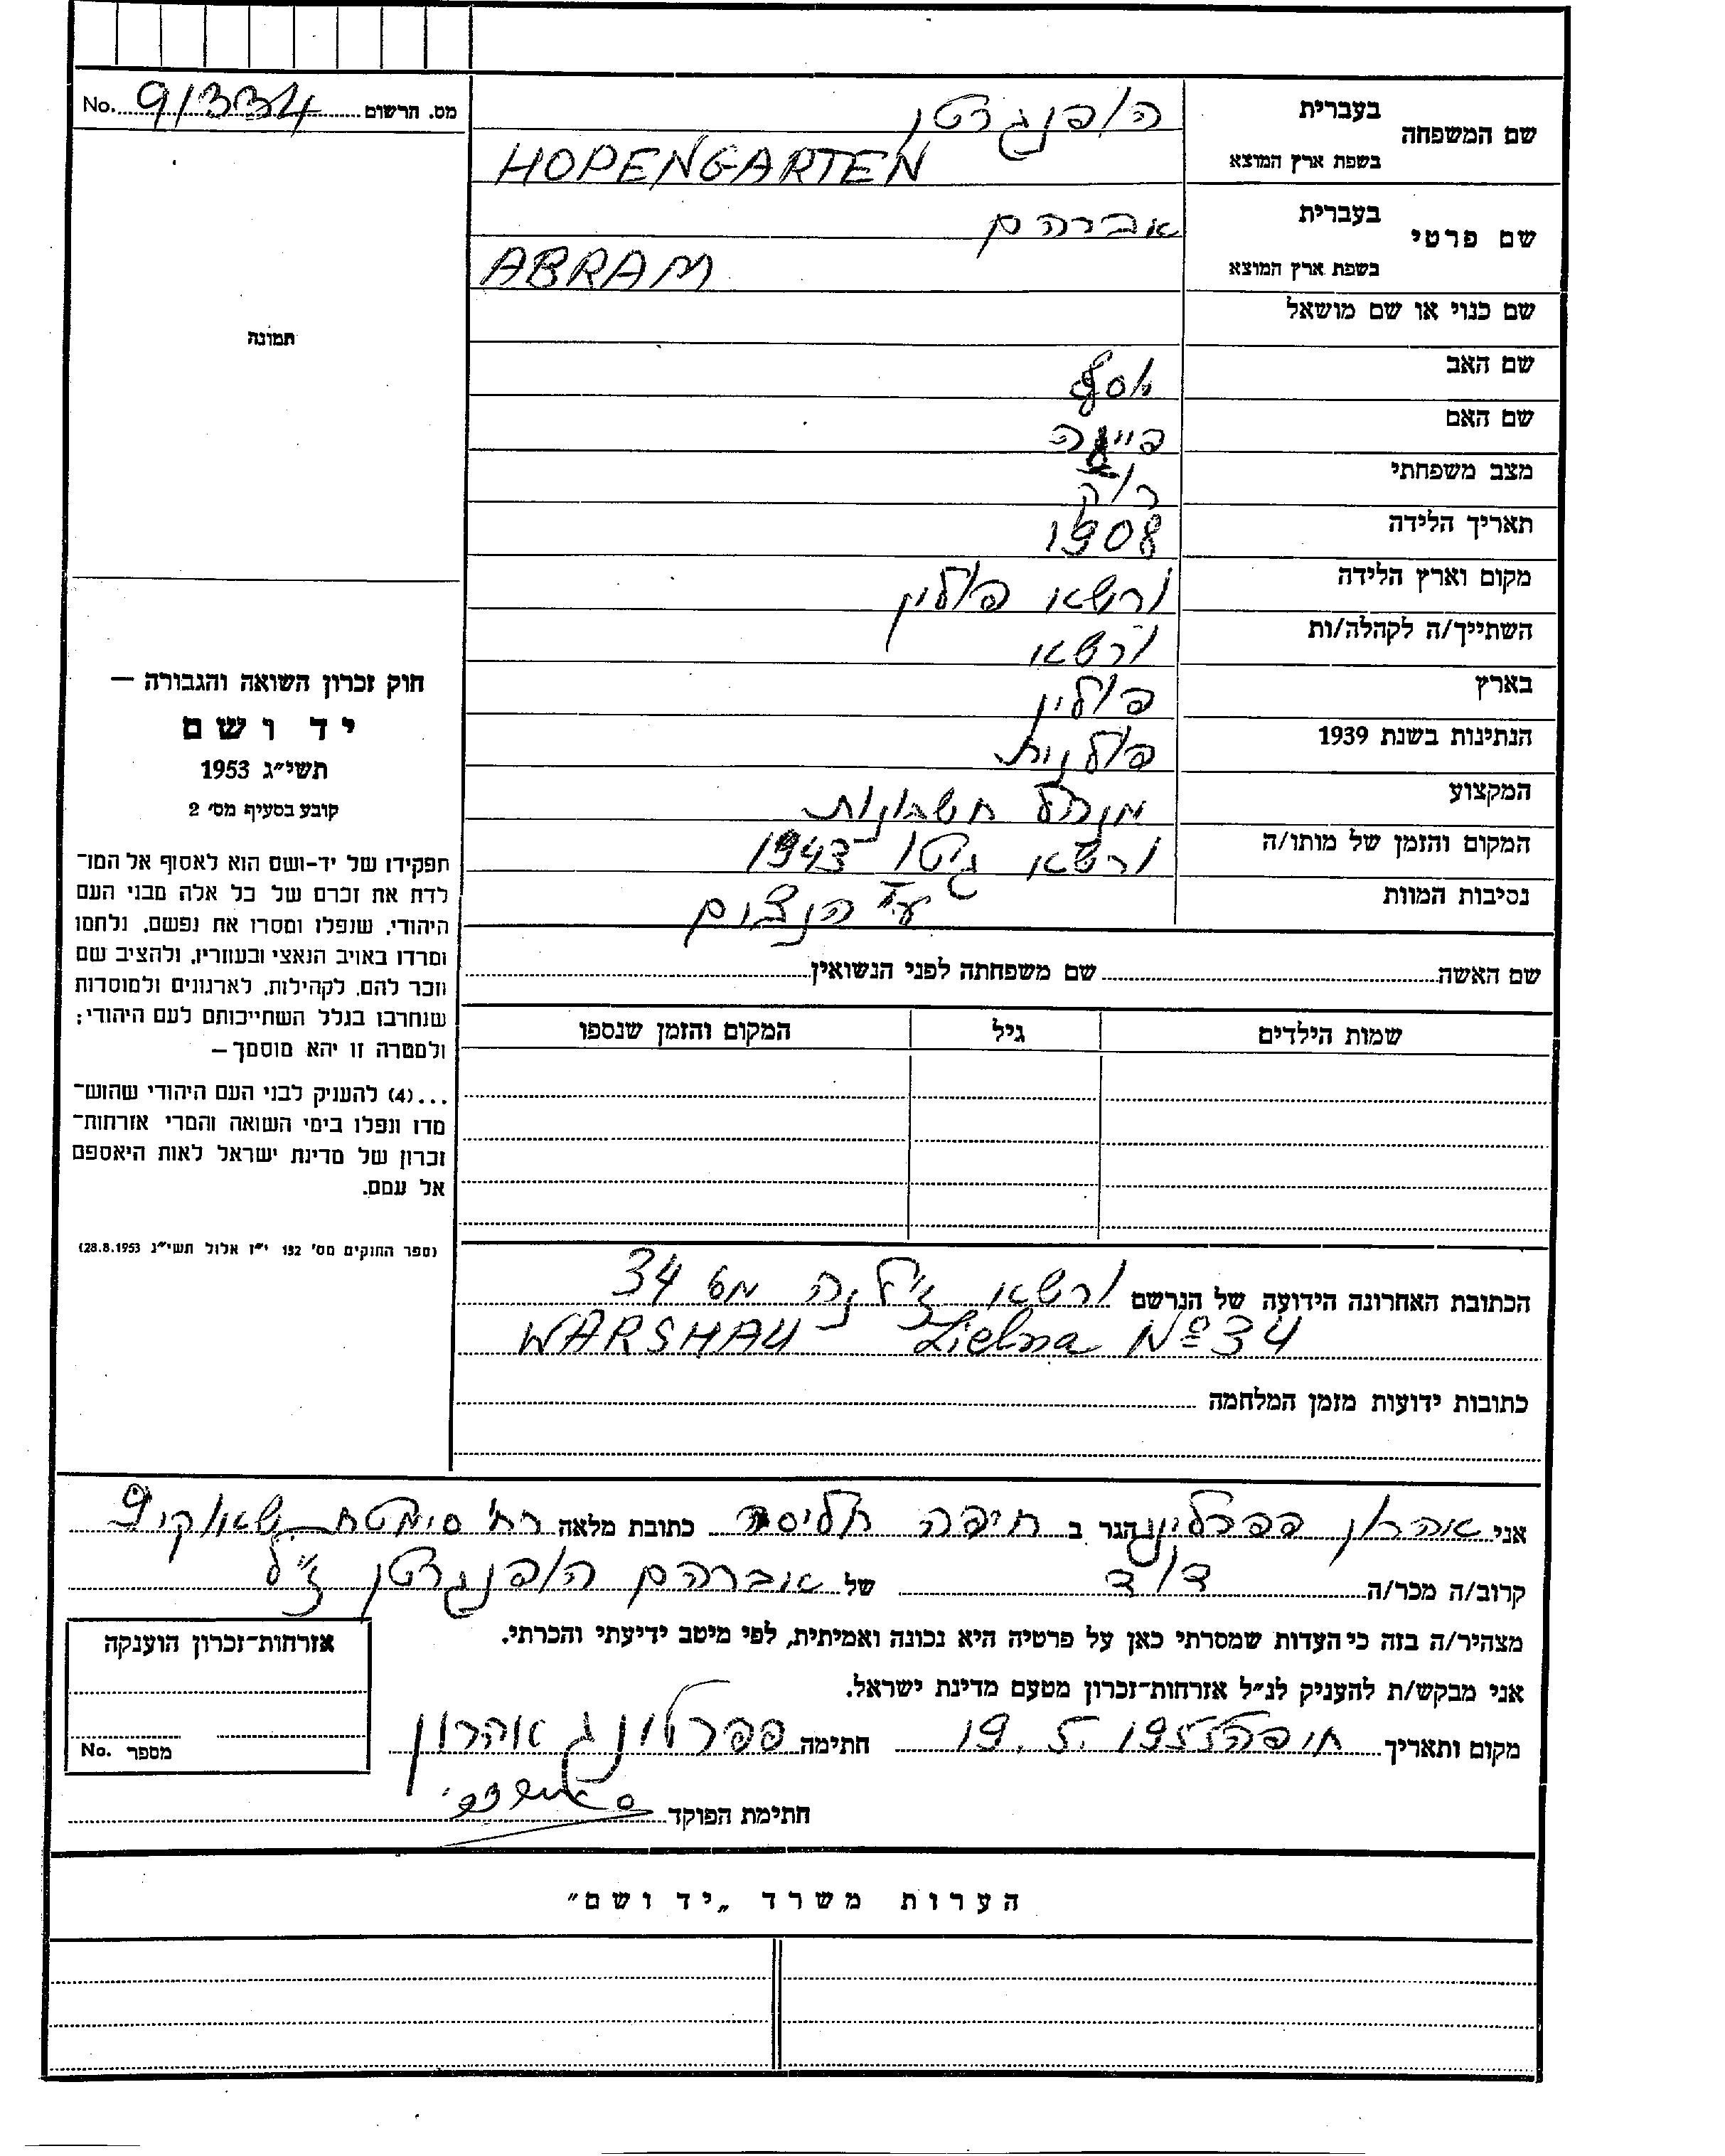 מס. הרשום 91334 No.
שם המשפחה
בעברית הופנגרטן
בשפת ארץ המוצא HOPENGARTEN
שם פרטי
בעברית אברהם
בשפת ארץ המוצא ABRAM
שם כנוי או שם מושאל
שם האב יוסף
שם האם
מצב משפחתי רוק
תאריך הלידה 1908
מקום וארץ הלידה ורשאו פולין
השתייך/ה לקהלה/ות ורשאו
בארץ פולין
הנתינות בשנת 1939 פולנית
המקצוע מנהל חשבונות
המקום והזמן של מותו/ה ורשאו גיטו 1943
נסיבות המוות ע״י הנצים
שם האשה שם משפחתה לפני הנשואין
שמות הילדים גיל המקום והזמן שנספו
הכתובת האחרונה הידועה של הנרשם ורשאו ז׳לנה מס 34
WARSHAU Zielna № 34
כתובות ידועות מזמן המלחמה
תמונה
חוק זכרון השואה והגבורה –
יד ושם
תשי״ג 1953
קובע בסעיף מס׳ 2
תפקידו של יד-ושם הוא לאסוף אל המו־
לדת את זכרם של כל אלה מבני העם
היהודי, שנפלו ומסרו את נפשם, נלחמו
ומרדו באויב הנאצי ובעוזריו, ולהציב שם
וזכר להם, לקהילות, לארגונים ולמוסדות
שנחרבו בגלל השתייכותם לעם היהודי;
ולמטרה זו יהא מוסמך –
...(4) להעניק לבני העם היהודי שהוש־
מדו ונפלו בימי השואה והמרי אזרחות־
זכרון של מדינת ישראל לאות היאספם
אל עמם.
(ספר החוקים מס׳ 132 י״ז אלול תשי״ג 28.8.1953)
אני אהרון פפרלינג הגר ב חיפה חליסה כתובת מלאה רח׳ סימטת 9
קרוב/ה מכר/ה דוד של אברהם הופנגרטן ז״ל
מצהיר/ה בזה כי העדות שמסרתי כאן על פרטיה היא נכונה ואמיתית, לפי מיטב ידיעתי והכרתי.
אני מבקש/ת להעניק לנ״ל אזרחות־זכרון מטעם מדינת ישראל.
מקום ותאריך חיפה 19.5.1955 חתימה פפרלינג אהרון
חתימת הפוקד
אזרחות־זכרון הוענקה
מספר No.
הערות משרד „יד ושם״